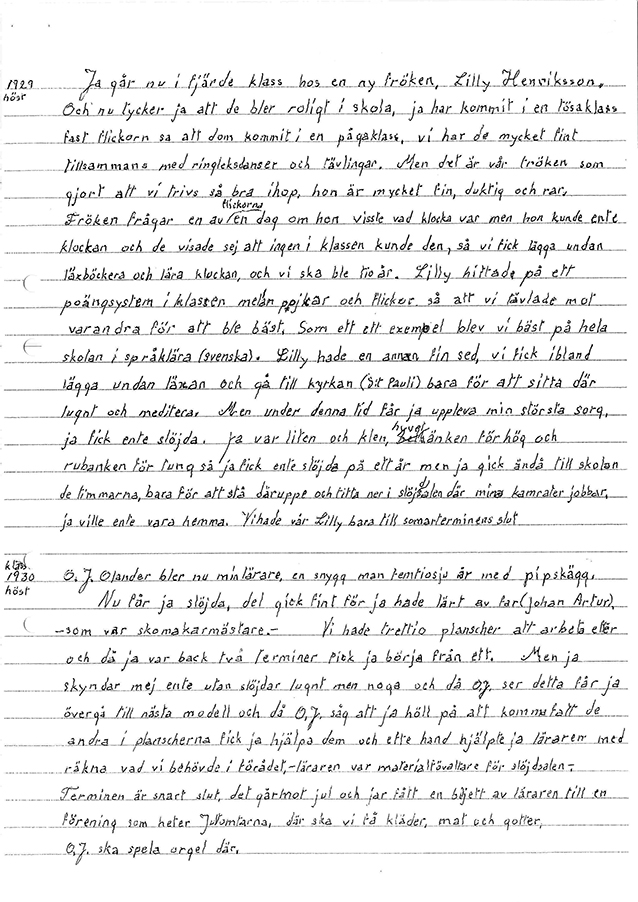 1929 Ja går nu i fjärde klass hos en ny fröken, Lilly Henriksson.
höst Och nu tycker ja att de bler roligt i skola, ja har kommit i en tösaklass
fast flickorn sa att dom kommit i en pågaklass, vi har de mycket fint
tillsammans med ringleksdanser och tävlingar. Men det är vår fröken som
gjort att vi trivs så bra ihop, hon är mycket fin, duktig och rar.
flickorna
Fröken frågar en av en dag om hon visste vad klocka var men hon kunde ente
klockan och de visade sej att ingen i klassen kunde den, så vi fick lägga undan
läxböckera och lära kluckan, och vi ska ble tio år. Lilly hittade på ett
poängsystem i klassen melan pojkar och flickor så att vi tävlade mot
varandra för att ble bäst. Som ett ett exempel blev vi bäst på hela
skolan i språklära (svenska). Lilly hade en annan fin sed, vi fick ibland
lägga undan läxan och gå till kyrkan (S:t Pauli) bara för att sitta där
lugnt och meditera. Men under denna tid får ja uppleva min största sorg,
hyvel
ja fick ente slöjda. Ja var liten och klen, bänken för hög och
rubanken för tung så ja fick ente slöjda på ett år men ja gick ändå till skolan
de timmarna, bara för att stå däruppe och titta ner i slöjdsalen där mina kamrater jobbar,
ja ville ente vara hemma. Vi hade vår Lilly bara till somarterminens slut
klass.
1930 O.J. Olander bler nu min lärare, en snygg man femtiosju år med pipskägg.
höst Nu får ja slöjda, del gick fint för ja hade lärt av far (Johan Artur),
-som var skomakarmästare.- Vi hade trettio planscher att arbeta efter
och då ja var back två terminer fick ja börja från ett. Men ja
skyndar mej ente utan slöjdar lugnt men noga och då O.J. ser detta får ja
övergå till nästa modell och då O.J. såg att ja höll på att komma fatt de
andra i planscherna fick ja hjälpa dem och efte hand hjälpte ja läraren med
räkna vad vi behövde i förådet,-läraren var materialförvaltare för slöjdsalen-
Terminen är snart slut, det går mot jul och jar fått en biljett av läraren till en
förening som heter Jultomtarna, där ska vi få kläder, mat och gotter,
O.J. ska spela orgel där.